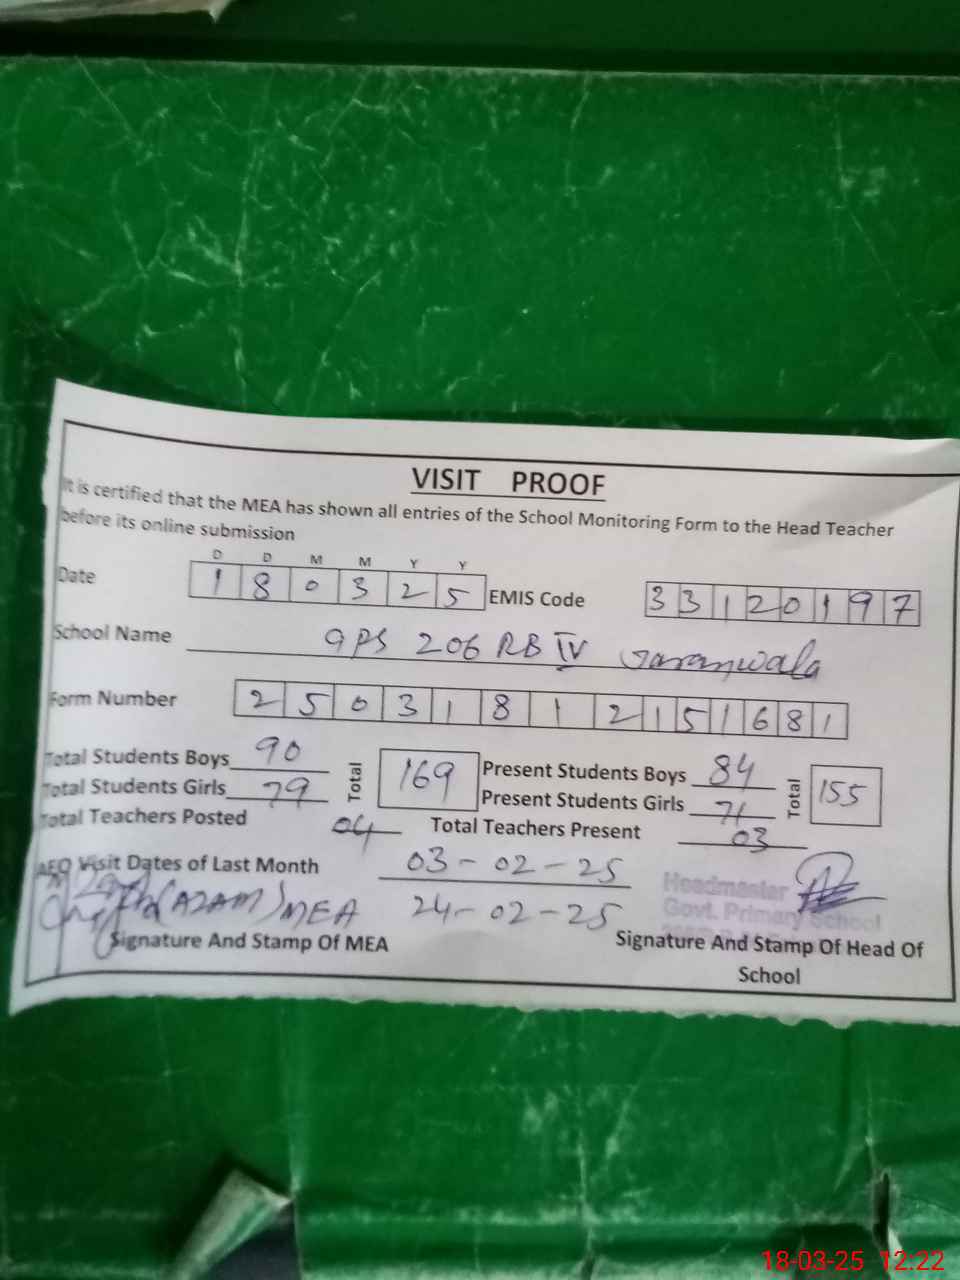 VISIT PROOF
It is certified that the MEA has shown all entries of the School Monitoring Form to the Head Teacher
before its online submission
D D M M Y Y
Date 1 8 0 3 2 5 EMIS Code 3 3 1 2 0 1 9 7
School Name GPS 206 RB IV
Form Number 2 5 0 3 1 8 1 2 1 5 1 6 8 1
Total Students Boys 90 Total 169 Present Students Boys 84 Total 155
Total Students Girls 79 Present Students Girls 71
Total Teachers Posted 04 Total Teachers Present 03
AEO Visit Dates of Last Month 03-02-25
(AZAM) MEA 24-02-25 Headmaster
Govt. Primary School
Signature And Stamp Of MEA Signature And Stamp Of Head Of
School
18-03-25 12:22